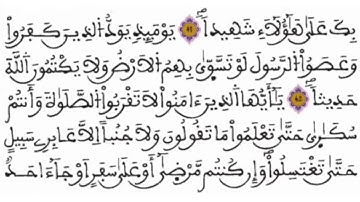 بِكَ عَلَىٰ هَٰٓؤُلَآءِ شَهِيداًۖ 41 يَوْمَئِذٍ يَوَدُّ الذِينَ كَفَرُواْ
وَعَصَوُاْ الرَّسُولَ لَوْ تَسَّوّىٰ بِهِمُ الَارْضُ وَلَا يَكْتُمُونَ اللَّهَ
حَدِيثاًۖ 42 يَٰٓأَيُّهَا الذِينَ ءَامَنُواْ لَا تَقْرَبُواْ الصَّلَوٰةَ وَأَنتُمْ
سُكَٰرىٰ حَتَّىٰ تَعْلَمُواْ مَا تَقُولُونَ وَلَا جُنُباً اِلَّا عَابِرِے سَبِيلٍ
حَتَّىٰ تَغْتَسِلُواْۖ وَإِن كُنتُم مَّرْضىٰٓ أَوْ عَلَىٰ سَفَرٍ اَوْ جَآءَ احَدٌ